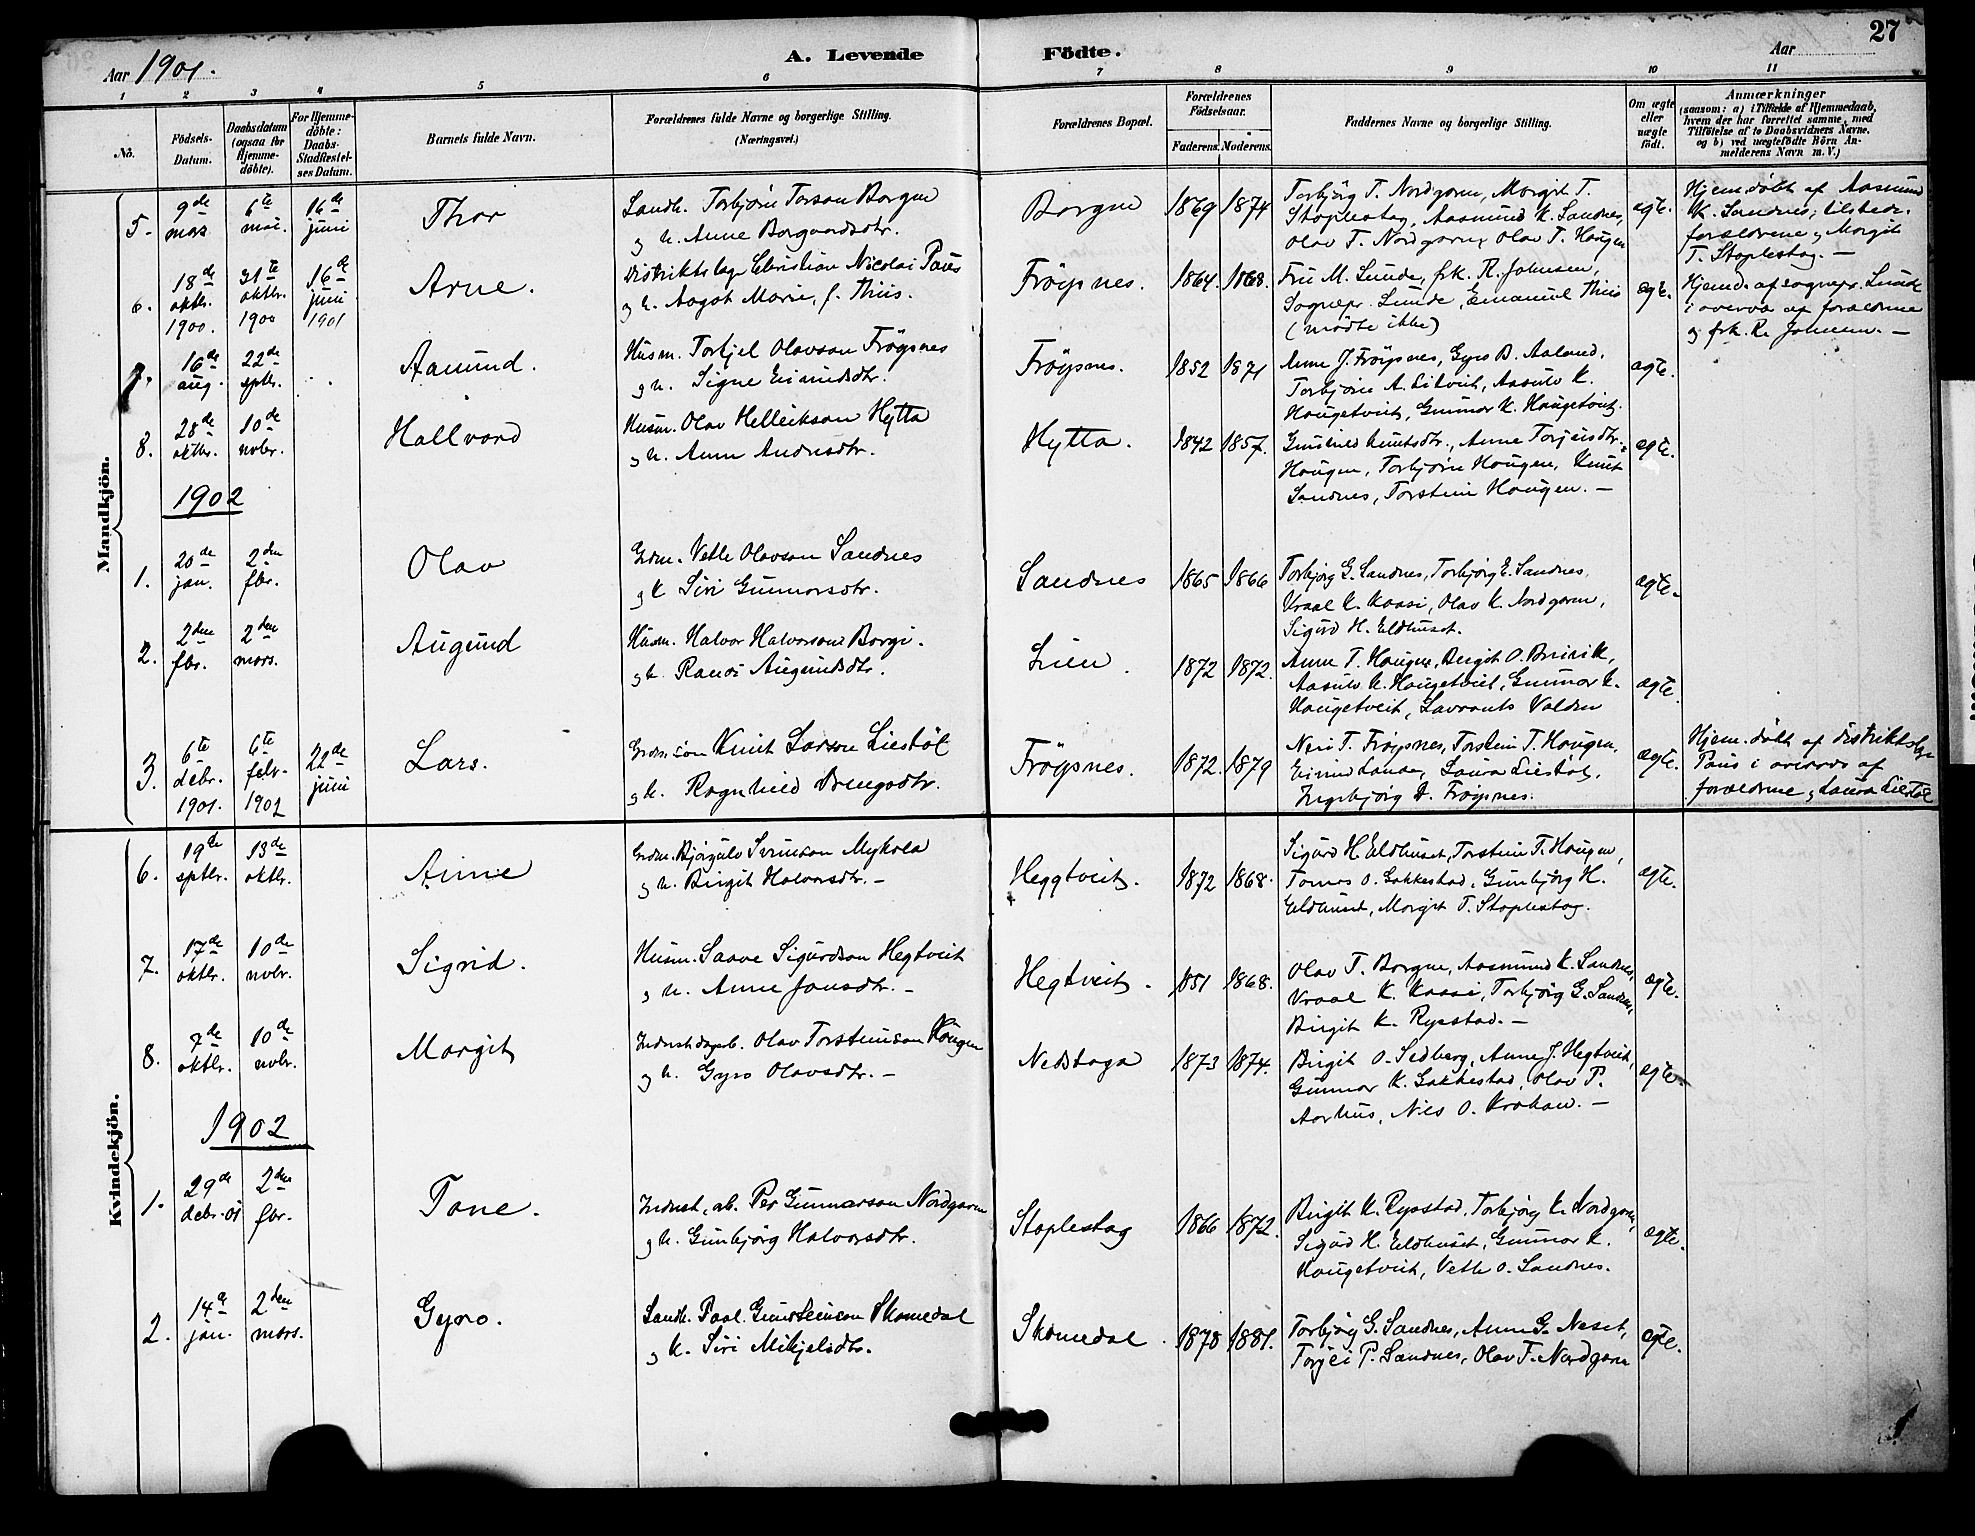 27
Aar 1901.
A. Levende Födte.
Aar
1 2 3 4 5 6 7 8 9 10 11
No.
Födsels-Datum.
Daabsdatum (ogsaa for Hjemme-döbte).
For Hjemme-döbte: Daabs-Stadfæstel-ses Datum.
Barnets fulde Navn.
Forældrenes fulde Navne og borgerlige Stilling.
(Næringsvei.)
Forældrenes Bopæl.
Forældrenes Födselsaar.
Faderens. Moderens.
Faddernes Navne og borgerlige Stilling.
Om ægte eller uægte födt.
Anmærkninger
(saasom: a) i Tilfælde af Hjemmedaab,
hvem der har forrettet samme, med
Tilföielse af to Daabsvidners Navne.
og b) ved uægtefödte Börn An-
melderens Navn m. V.)
Mandkjön.
5. 9de mars 6te mai. 16de juni Thor
Landh. Torbjörn Torson Borgne
og h. Anne Borgvardsdtr.
Borgne 1869 1874
Torbjörg T. Nordgaren, Morgit T.
Stoplestog, Aasmund K. Sandnes,
Olav T. Nordgaren, Olav T. Hougen
ægte.
Hjem.döbt af Aasmund
K. Sandnes; tilstede:
forældrene og Morgit
T. Stoplestog. —
6. 18de oktbr. 1900. 31te oktbr. 1900 16de juni 1901 Arne.
Distriktslæge Christian Nicolai Paus
og h. Aagot Marie, f. Thiis.
Fröysnes. 1864. 1868.
Fru M. Lunde, frk. R. Johnsen,
Sognepr. Lunde, Emanuel Thiis
(mödte ikke)
ægte.
Hjemd. af sognepr. Lunde
i overvær af forældrene
og frk. R. Johnsen. —
7. 16de aug. 22de sptbr. Aamund.
Husm. Torkjel Olavson Fröysnes
og h. Signe Eivindsdtr.
Fröysnes. 1852 1871
Anne J. Fröysnes, Gyro B. Aaland,
Torbjörn A. Lilveit, Aasulv K.
Hougetveit, Gunnar K. Hougetveit.
ægte.
8. 28de oktbr. 10de novbr. Hallvord
Husm. Olav Helleikson Hytta
og h. Anne Andersdtr.
Hytta. 1842 1857.
Gunhild Knutsdtr., Anne Torjeisdtr.
Hougen, Torbjörn Hougen, Knut
Sandnes, Torstein Hougen. —
ægte.
1902
1. 20de jan. 2den fbr. Olav
Grdm. Vetle Olavson Sandnes
og h. Siri Gunnarsdtr.
Sandnes 1865 1866
Torbjörg G. Sandnes, Torbjörg E. Sandnes,
Vraal K. Kaasi, Olav K. Nordgaren,
Sigurd H. Eldhuset.
ægte.
2. 2den fbr. 2den mars. Augund
Husm. Halvor Halvorson Borgi.
og h. Randi Augundsdtr.
Lien. 1872 1872.
Anne T. Hougen, Birgit O. Breivik,
Aasulv K. Hougetveit, Gunnar K.
Hougetveit, Lavrants Valden
ægte.
3. 6te debr. 1901. 6te febr. 1902 22de juni Lars.
Grdm.sön Knut Larson Liestöl
og h. Ragnhild Drengsdtr.
Fröysnes. 1872. 1879
Neri T. Fröysnes, Torstein T. Hougen,
Laura Liestöl,
Ingebjörg D. Fröysnes.
ægte.
Hjem.döbt af distriktslæge
Paus i overvær af
forældrene og Laura Liestöl
Kvindekjön.
6. 19de sptbr. 13de oktbr. Anne
Grdm. Bjørgulv Sveinson Mykola
og h. Birgit Halvorsdtr. —
Heggtveit. 1872 1868.
Sigurd H. Eldhuset, Torstein T. Hougen,
Tomas O. Lakkestad, Gunbjörg H.
Eldhuset, Morgit T. Stoplestog.
ægte.
7. 17de oktbr. 10de novbr. Sigrid.
Husm. Saave Sigurdson Hegtveit
og h. Anne Jonsdtr. —
Hegtveit. 1851 1868.
Olav T. Borgne, Aasmund K. Sandnes,
Vraal K. Kaasi, Torbjörg G. Sandnes,
Birgit K. Rysstad. —
ægte.
8. 7de oktbr. 10de novbr. Morgit
Olav Torsteinson Hougen
og h. Gyro Olavsdtr. —
Nedstaga 1873 1874.
Birgit O. Sedberg, Anne J. Hegtveit,
Gunnar K. Lakkestad, Olav P.
Aarhus, Nils O. Krohan. —
ægte.
1902
1. 29de debr. 01 2den fbr. Tone.
Indrst. ab. Per Gunnarson Nordgaren
og h. Gunbjörg Halvorsdtr.
Stoplestog 1866 1872.
Birgit K. Rysstad, Torbjörg K. Nordgaren,
Sigurd H. Eldhuset, Gunnar K.
Hougetveit, Vetle O. Sandnes.
ægte.
2. 14de jan. 2den mars. Gyro.
Landh. Paal Gunsteinson Skomedal
og h. Siri Mikjelsdtr.
Skomedal. 1878 1881.
Torbjörg G. Sandnes, Anne G. Neset,
Torjei P. Sandnes, Olav T. Nordgaren
ægte.